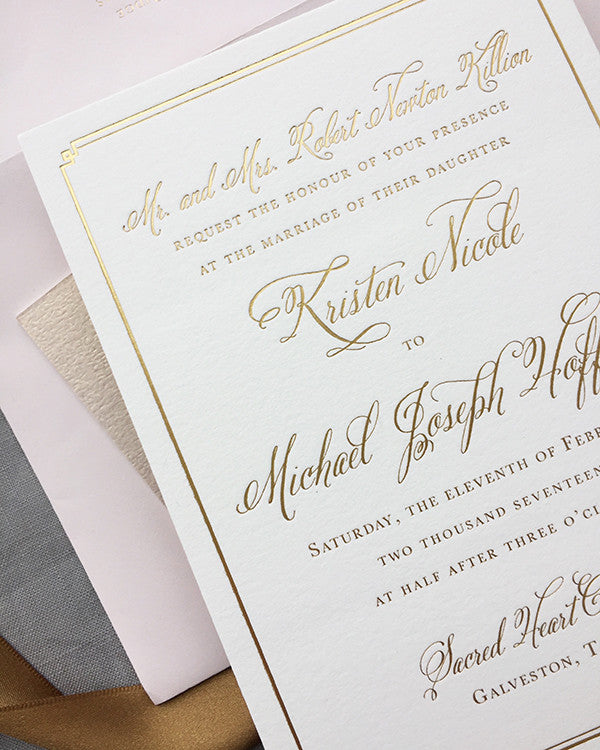 Mr. and Mrs. Robert Newton Killion
REQUEST THE HONOUR OF YOUR PRESENCE
AT THE MARRIAGE OF THEIR DAUGHTER
Kristen Nicole
TO
Michael Joseph Hoff
SATURDAY, THE ELEVENTH OF FEBR
TWO THOUSAND SEVENTEEN
AT HALF AFTER THREE O'CL
Sacred Heart C
GALVESTON, T